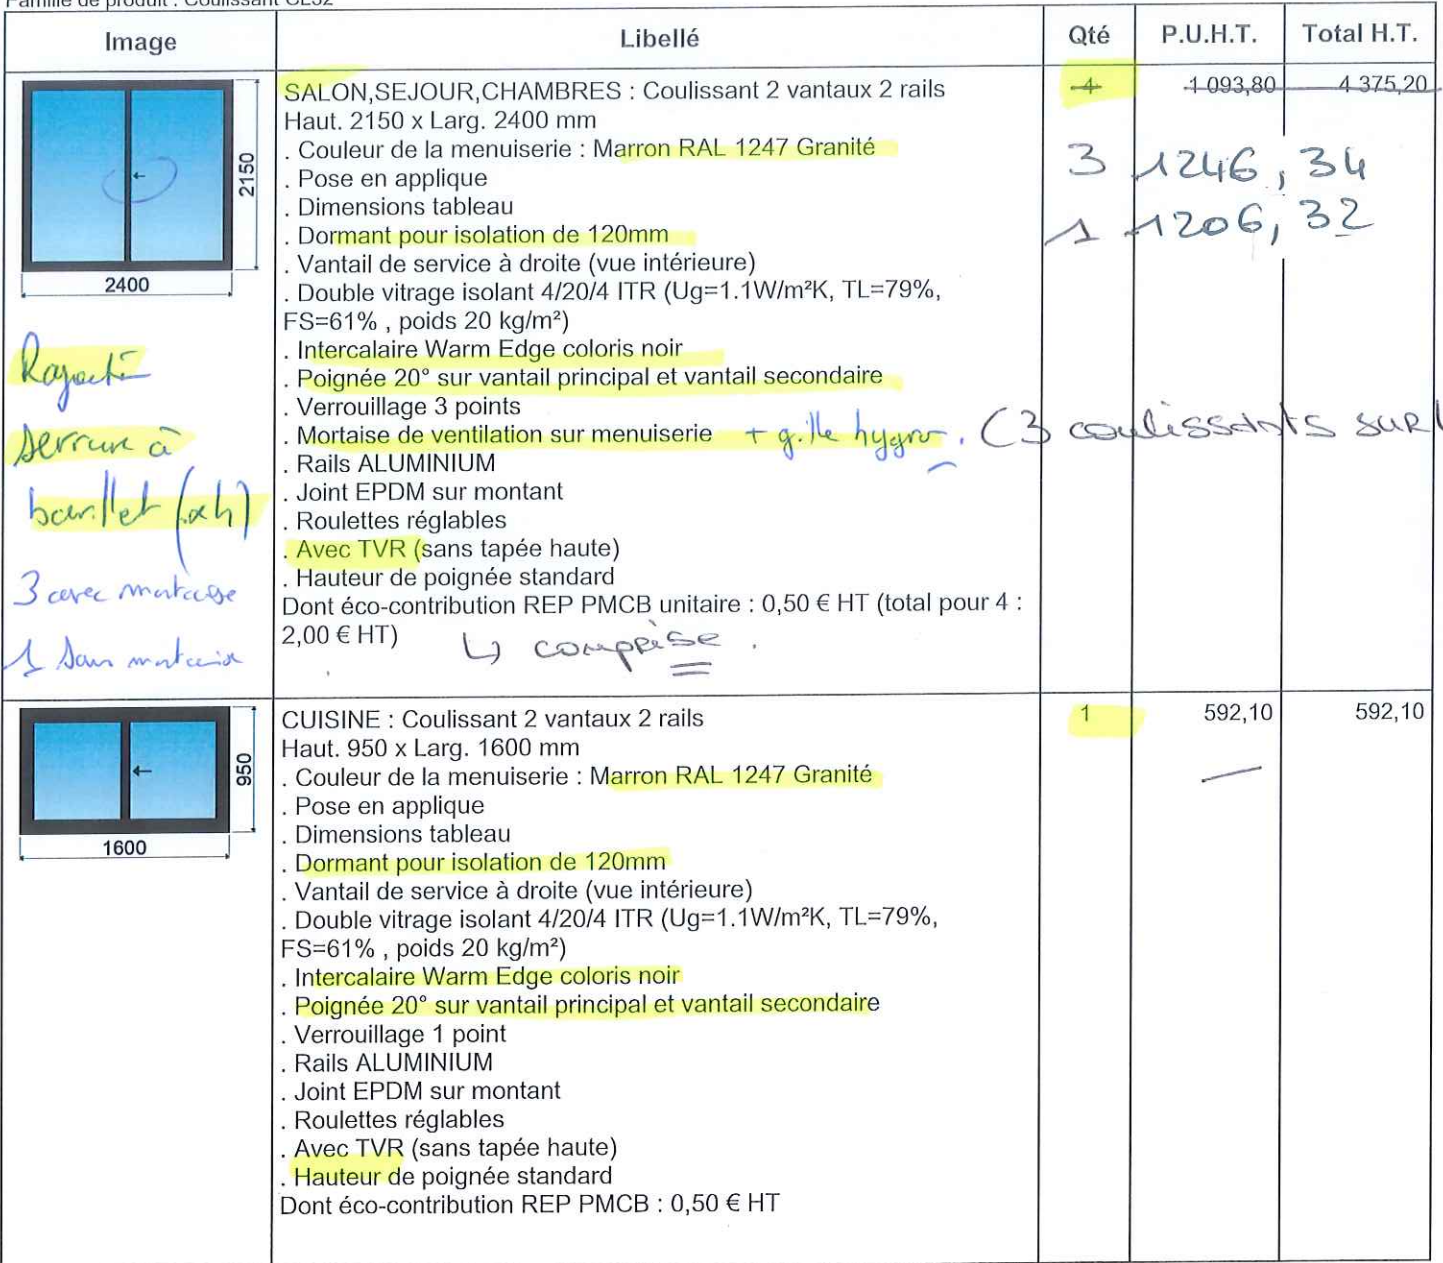 Famille de produit : Coulissant CL32
Image Libellé Qté P.U.H.T. Total H.T.
2150
2400
SALON,SEJOUR,CHAMBRES : Coulissant 2 vantaux 2 rails 4 1 093,80 4 375,20
Haut. 2150 x Larg. 2400 mm
. Couleur de la menuiserie : Marron RAL 1247 Granité
3 1246,34
. Pose en applique
. Dimensions tableau
1 1206,32
. Dormant pour isolation de 120mm
. Vantail de service à droite (vue intérieure)
. Double vitrage isolant 4/20/4 ITR (Ug=1.1W/m²K, TL=79%,
FS=61% , poids 20 kg/m²)
. Intercalaire Warm Edge coloris noir
. Poignée 20° sur vantail principal et vantail secondaire
. Verrouillage 3 points
. Mortaise de ventilation sur menuiserie + grille hygro. (3 coulissants sur
. Rails ALUMINIUM
. Joint EPDM sur montant
. Roulettes réglables
. Avec TVR (sans tapée haute)
. Hauteur de poignée standard
Dont éco-contribution REP PMCB unitaire : 0,50 € HT (total pour 4 :
2,00 € HT) ↳ comprise.
serrure à
barillet (x4)
3 avec mortaise
1 sans mortaise
950
1600
CUISINE : Coulissant 2 vantaux 2 rails 1 592,10 592,10
Haut. 950 x Larg. 1600 mm
. Couleur de la menuiserie : Marron RAL 1247 Granité
. Pose en applique
. Dimensions tableau
. Dormant pour isolation de 120mm
. Vantail de service à droite (vue intérieure)
. Double vitrage isolant 4/20/4 ITR (Ug=1.1W/m²K, TL=79%,
FS=61% , poids 20 kg/m²)
. Intercalaire Warm Edge coloris noir
. Poignée 20° sur vantail principal et vantail secondaire
. Verrouillage 1 point
. Rails ALUMINIUM
. Joint EPDM sur montant
. Roulettes réglables
. Avec TVR (sans tapée haute)
. Hauteur de poignée standard
Dont éco-contribution REP PMCB : 0,50 € HT